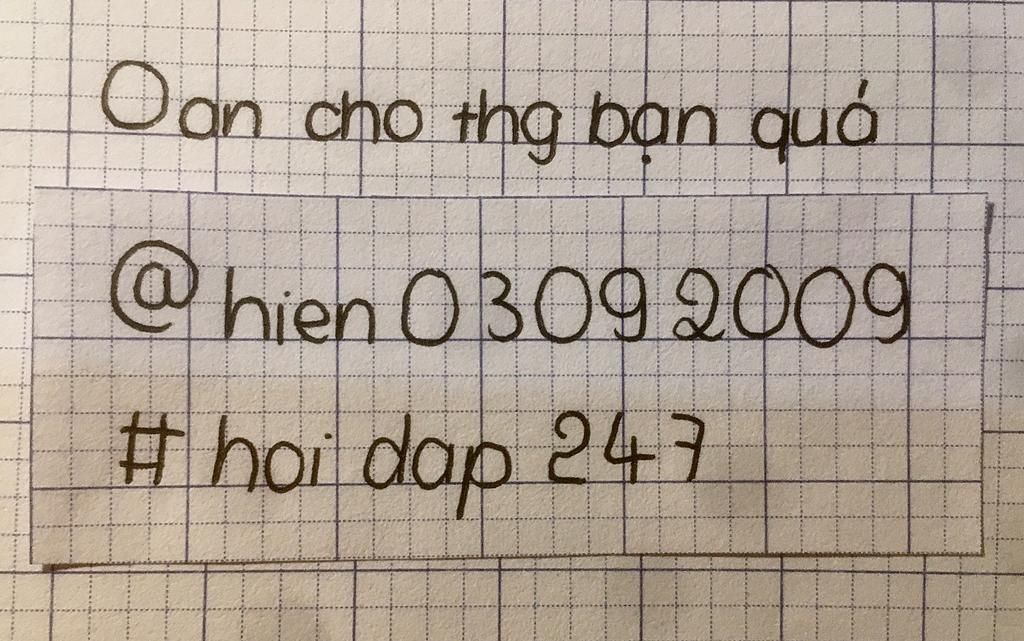 Oan cho thg bạn quá
@hien03092009
#hoi dap 247